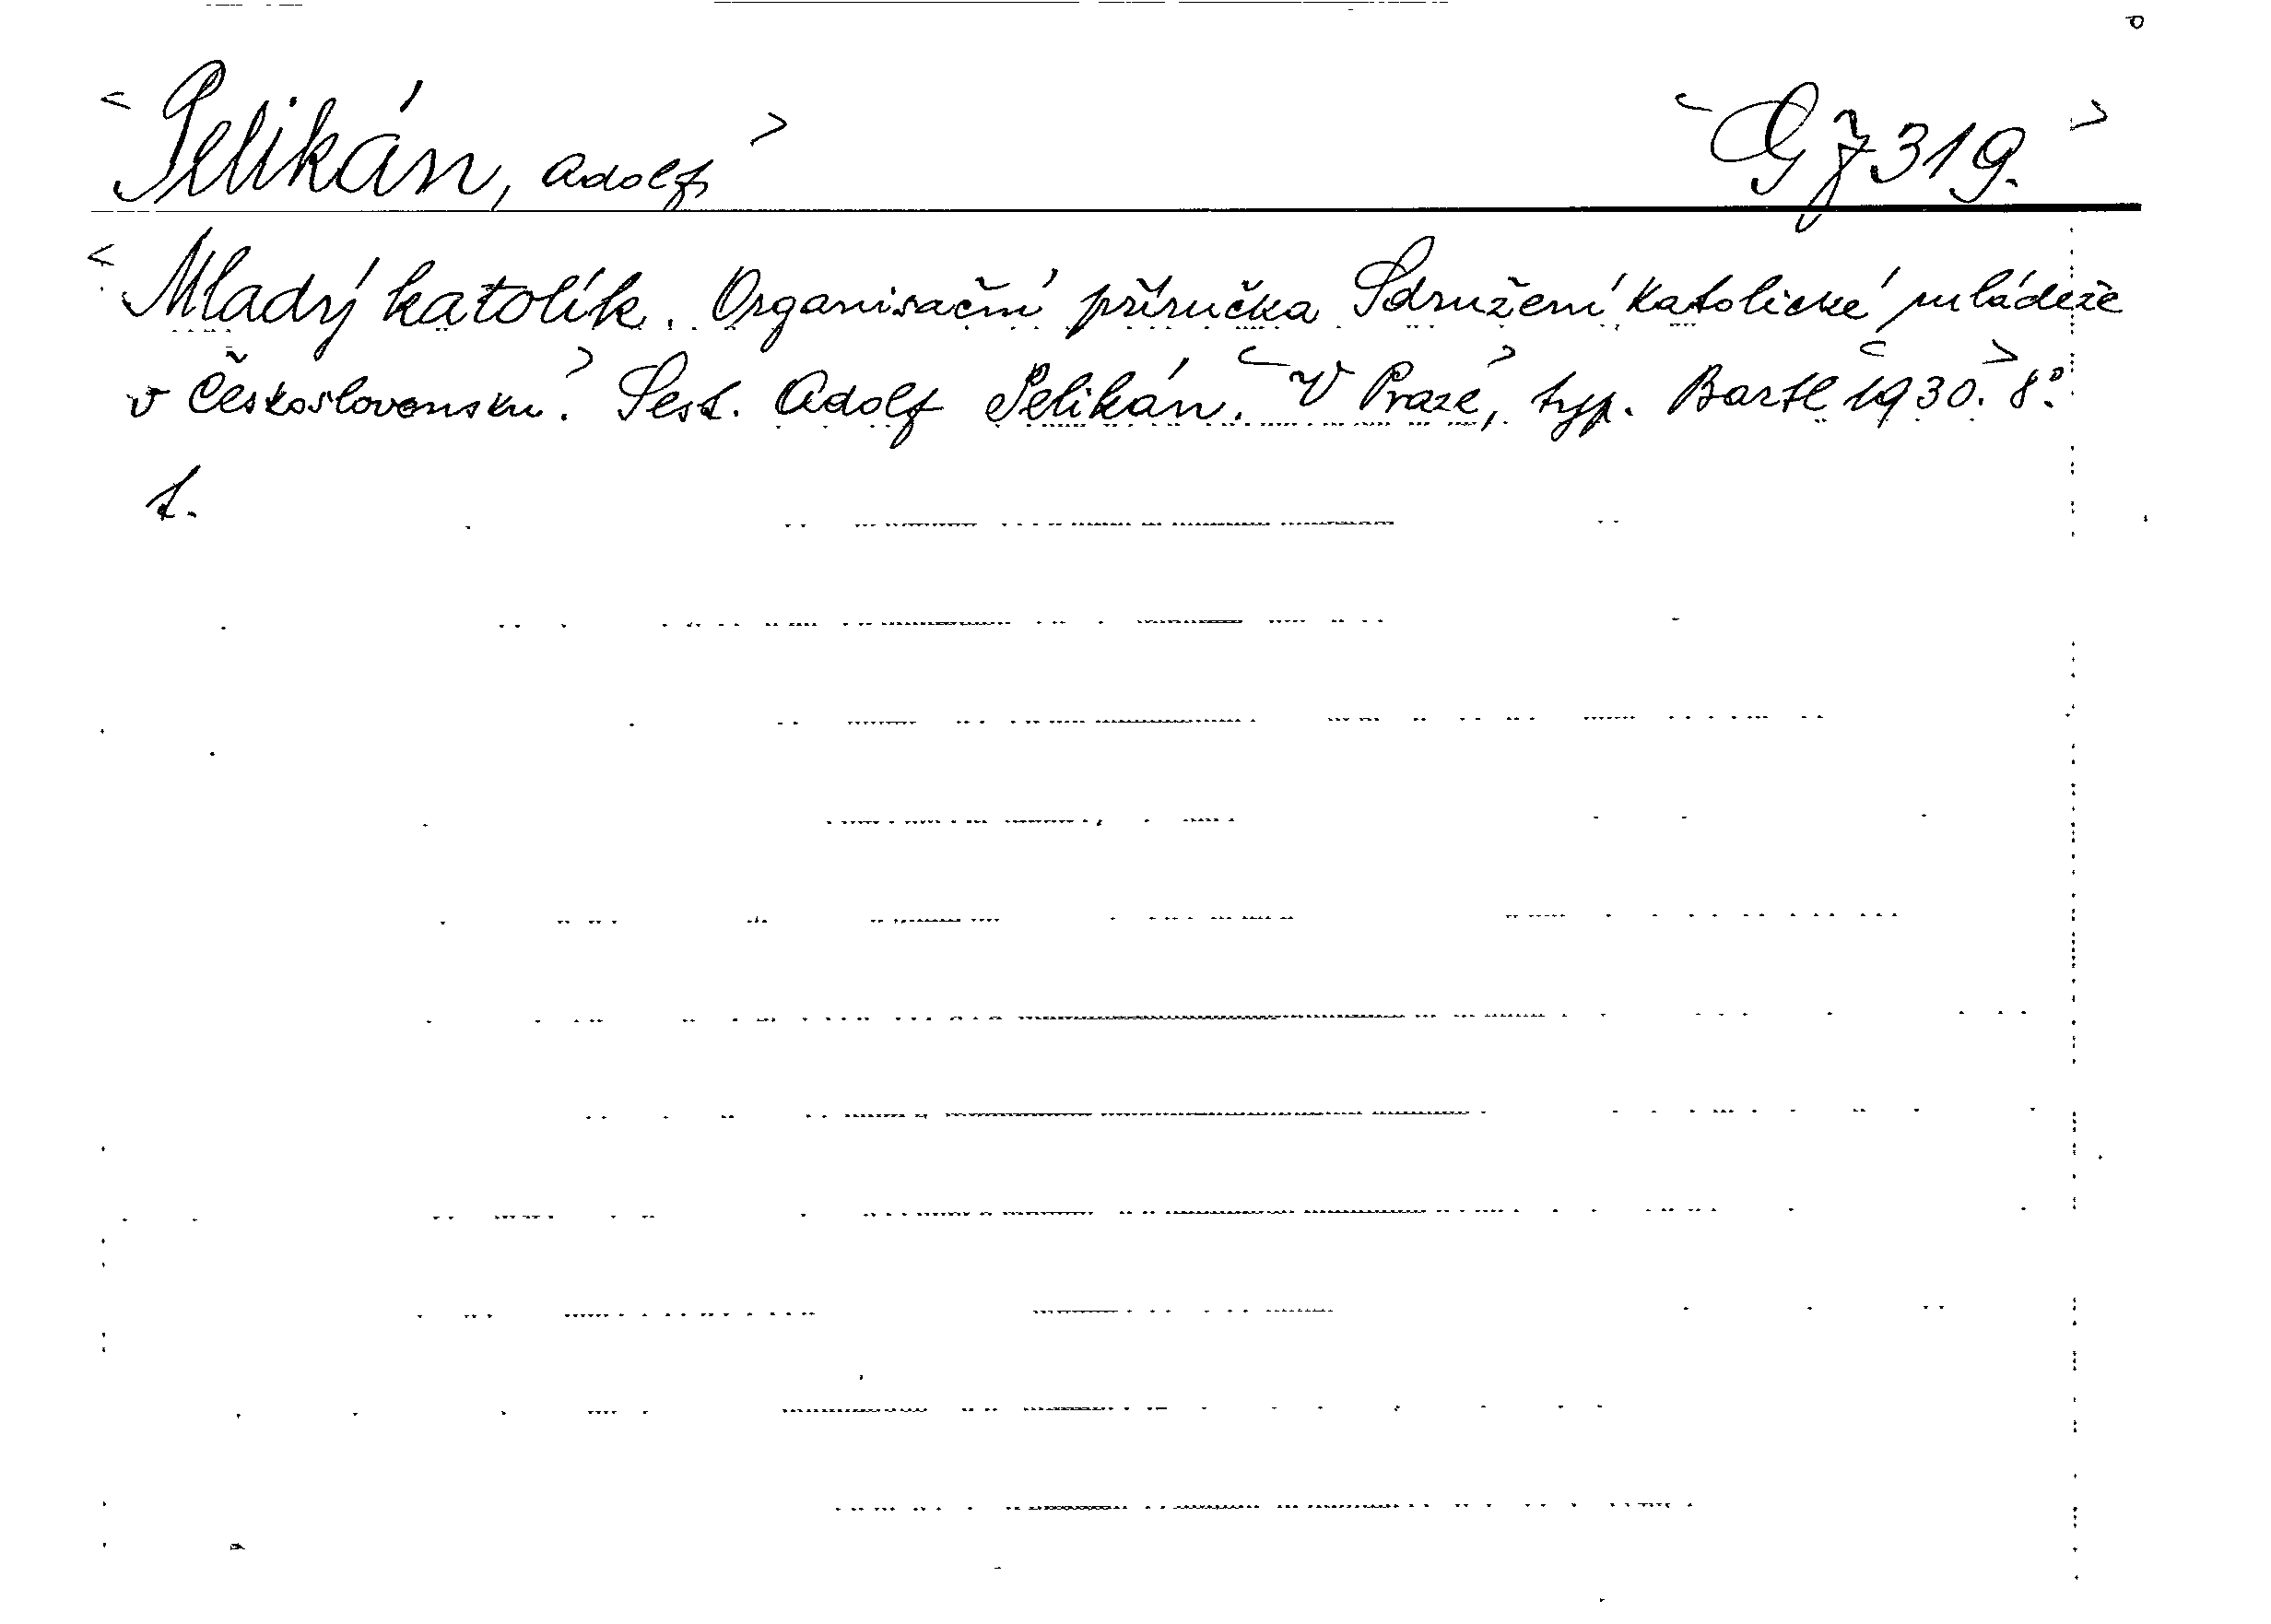 <Pelikán, Adolf> <G J 319.>
<Mladý katolík. Organisační příručka Sdružení katolické mládeže
v Československu.> Sest. Adolf Pelikán. <V Praze,> typ. Bartl <1930.> 8°.
t.